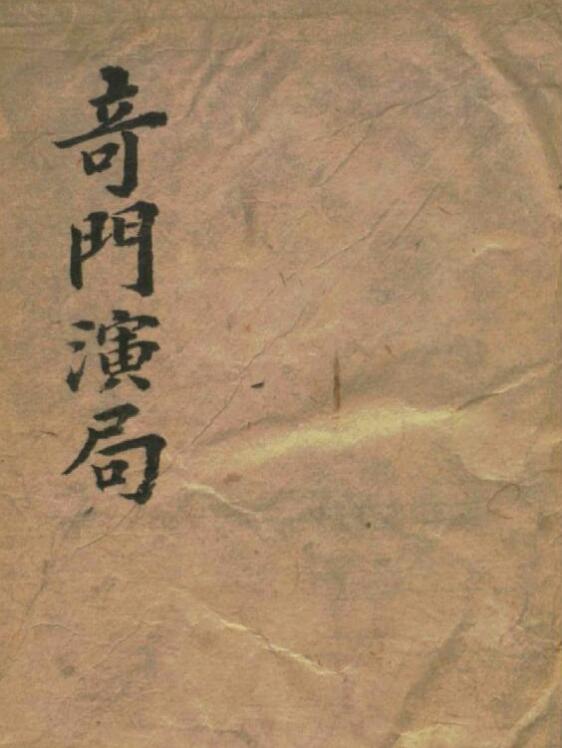 奇門演局